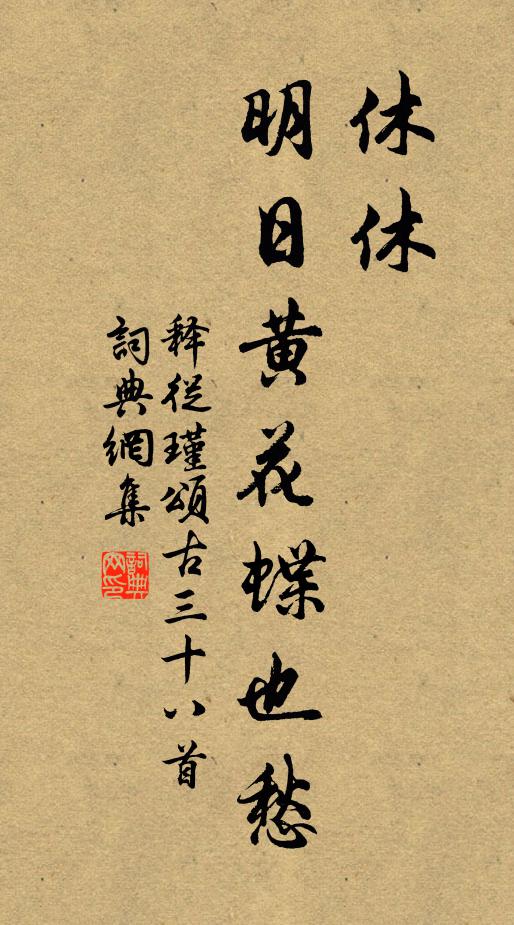 休休
明日黄花蝶也愁
释從瑾頌古三十八首
詞典網集
詞典網印